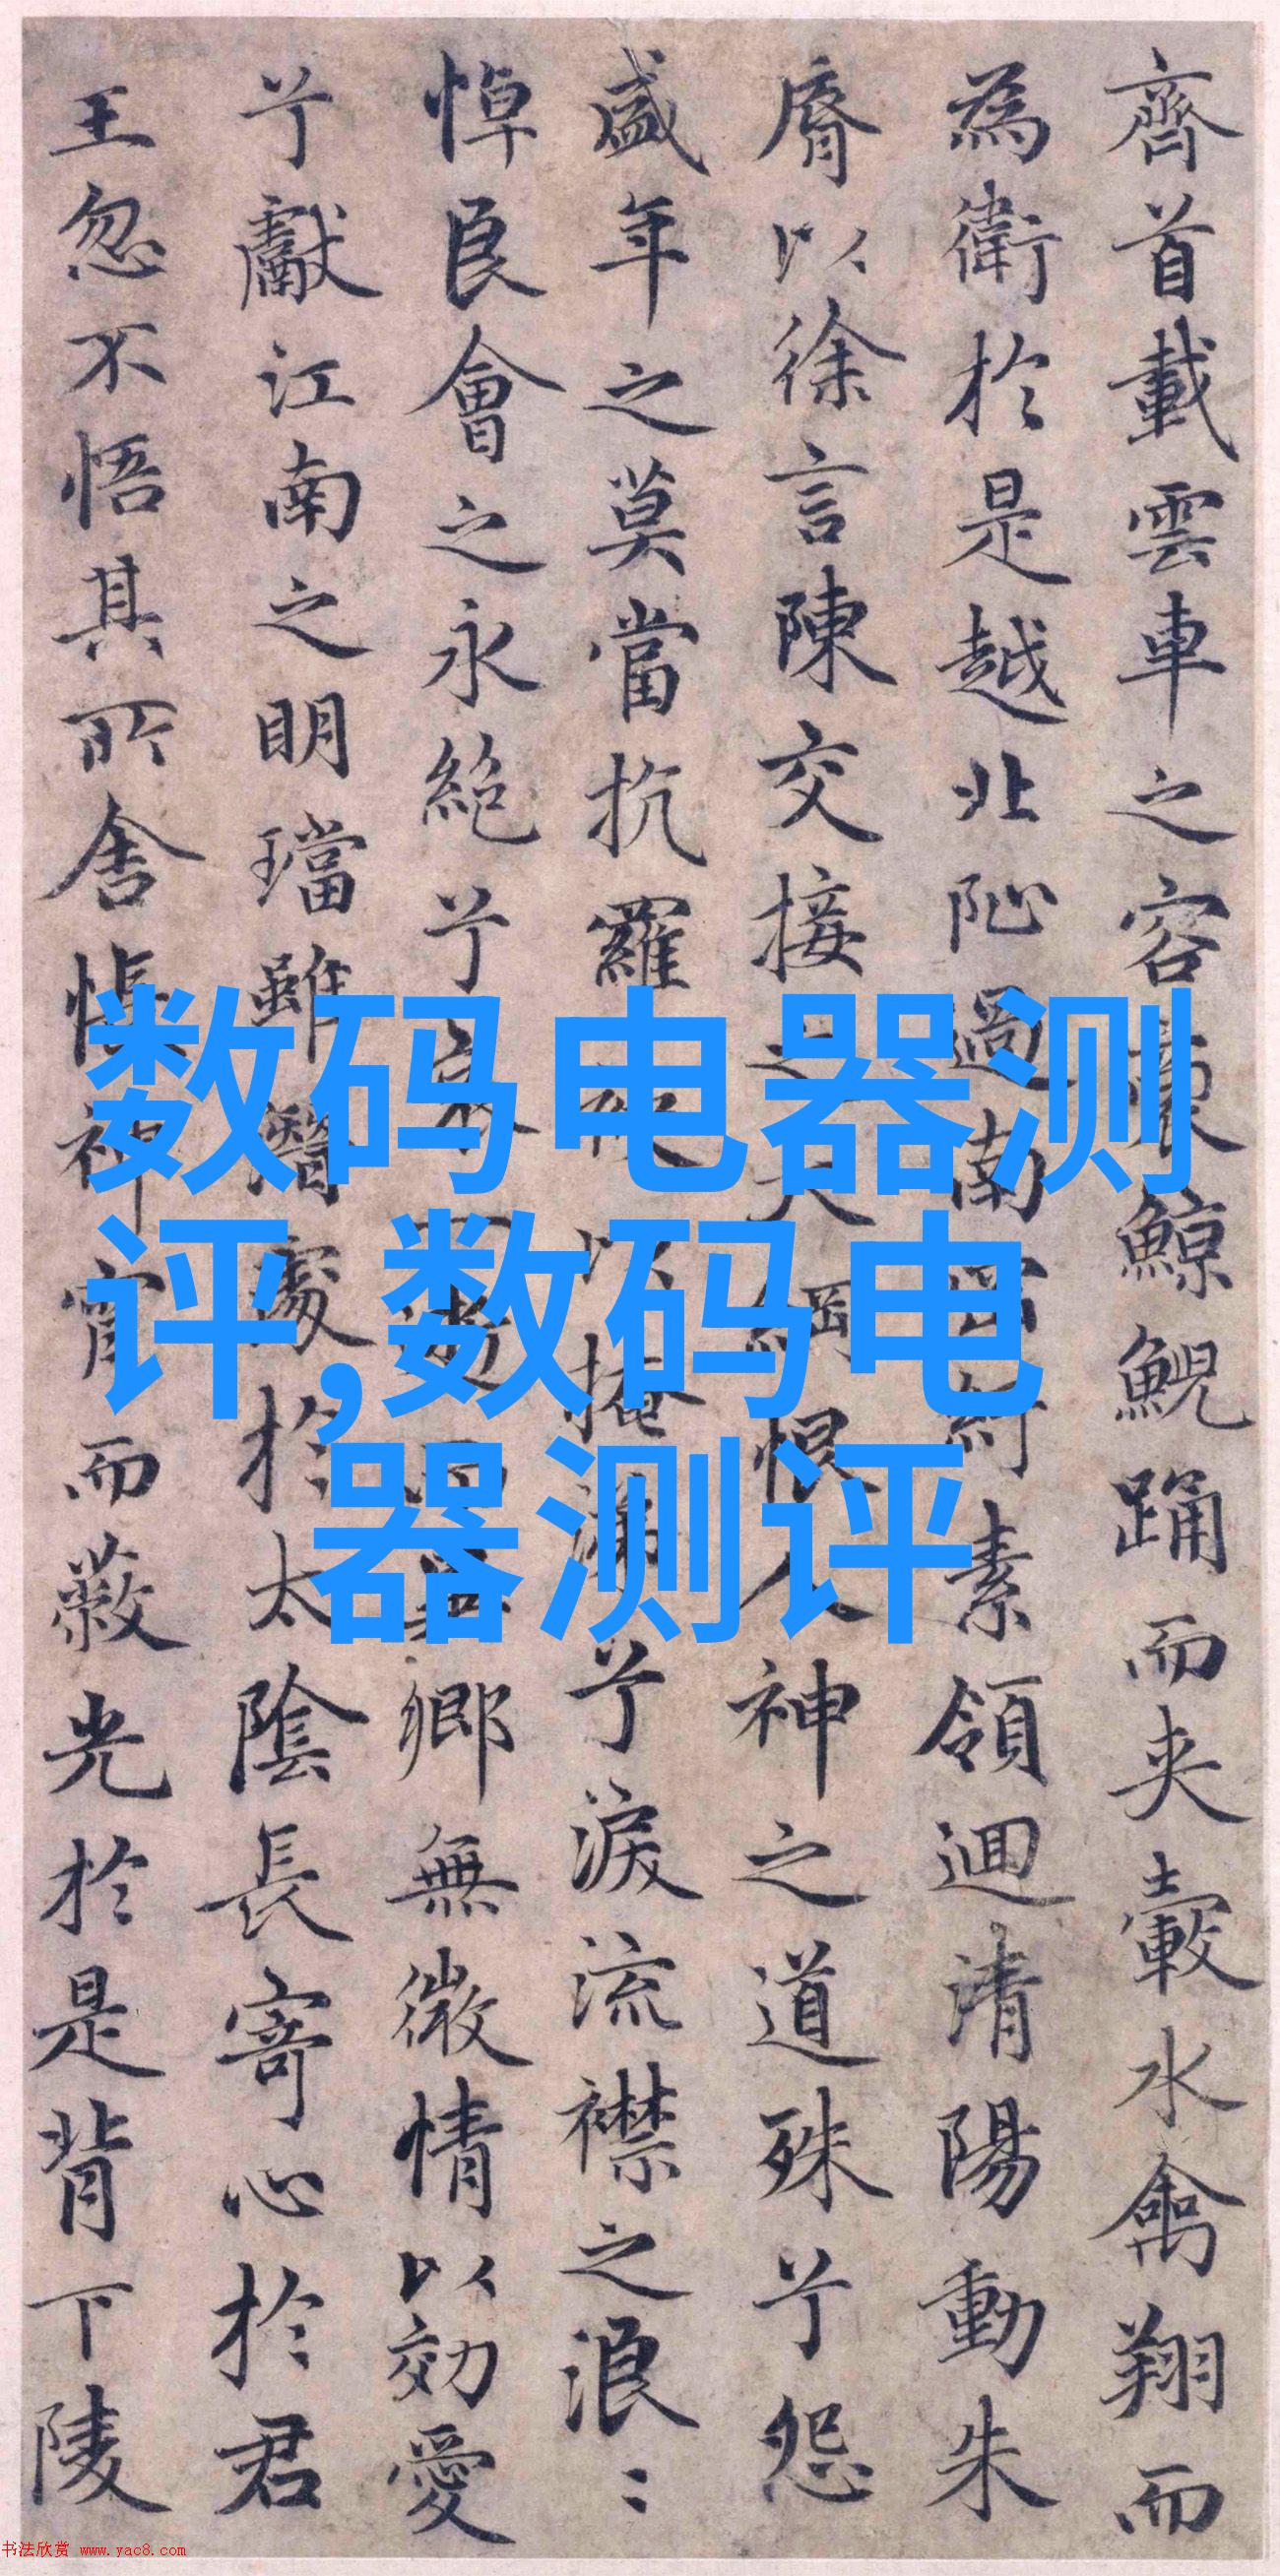 齊首載雲車之容裔鯨鯢踊而夾轂水禽翔而
為衛於是越北沚過南岡紆素領迴清陽動朱
脣以徐言陳交接之大綱恨人神之道殊兮怨
盛年之莫當抗羅袂以掩涕兮淚流襟之浪〻
悼良會之永絕兮哀一逝而異鄉無微情以効愛
兮獻江南之明璫雖潛處於太陰長寄心於君
王忽不悟其所舍悵神宵而蔽光於是背下陵
数码电器测
评,数码电
器测评
书法欣赏 www.yac8.com